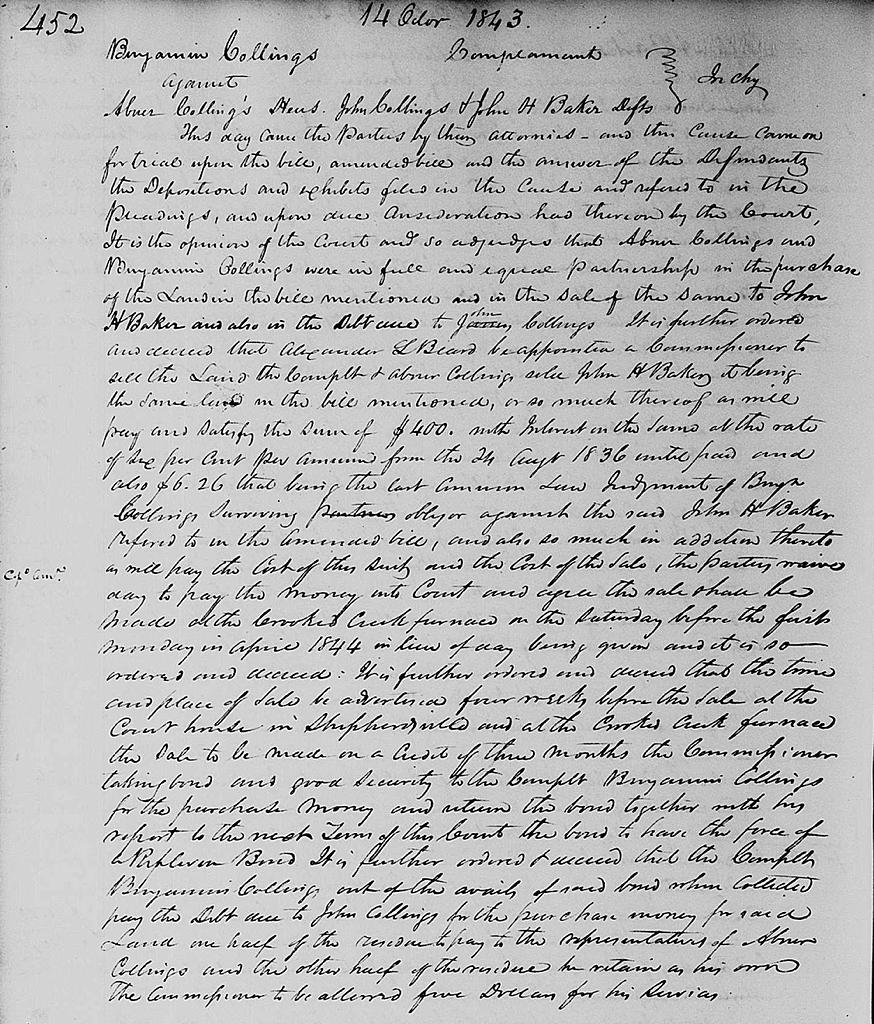 452
14 Octor 1843.
Benjamin Collings Complainant
against In Chy
Abner Colling's Heirs. John Collings & John H Baker Defts
This day came the Parties by their attornies - and this Cause came on
for trial upon the bill, amended bill and the answer of the Defendants
the Depositions and exhibits filed in the Cause and refered to in the
Pleadings, and upon due Consideration had thereon by the Court,
It is the opinion of the Court and so adjudges that Abner Collings and
Benjamin Collings were in full and equal Partnership in the purchase
of the Land in the bill mentioned and in the sale of the same to John
H Baker and also in the Debt due to John Collings It is further ordered
and decreed that Alexander L Beard be appointed a Commissioner to
sell the Land the Complt & abner Collings sold John H Baker, it being
the same land in the bill mentioned, or so much thereof as will
pay and satisfy the sum of $400. with Interest on the same at the rate
of six per Cent Per annum from the 24 Augt 1836 until paid and
also $6.26 that being the cost Common Law Judgment of Benjn
Collings Surviving partner obligor against the said John H Baker
refered to in the amended bill, and also so much in addition thereto
as will pay the Cost of this suit and the Cost of the Sale, the parties waive
Cpo amt.
day to pay the money into Court and agree the sale shall be
made at the Crooked Creek furnace on the Saturday before the first
monday in april 1844 in lieu of day being given and it is so
ordered and decreed: It is further ordered and decreed that the time
and place of Sale be advertised four weeks before the Sale at the
Court house in Shepherdsville and at the Crooked Creek furnace
the Sale to be made on a Credit of three months the Commissioner
taking bond and good security to the Complt Benjamin Collings
for the purchase money and return the bond together with his
report to the next Term of this Court the bond to have the force of
a Replevin Bond It is further ordered & decreed that the Complt
Benjamin Collings out of the avails of said bond when Collected
pay the Debt due to John Collings for the purchase money for said
Land one half of the residue to pay to the representatives of Abner
Collings and the other half of the residue he retain as his own
The Commissioner to be allowed five Dollars for his Services.